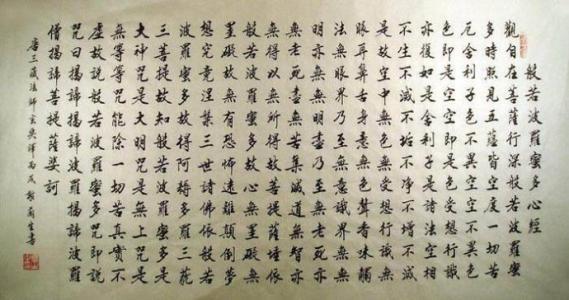 般若波羅蜜多心經
觀自在菩薩行深般若波羅蜜
多時照見五蘊皆空度一切苦
厄舍利子色不異空空不異色
色即是空空即是色受想行識
亦復如是舍利子是諸法空相
不生不滅不垢不淨不增不減
是故空中無色無受想行識無
眼耳鼻舌身意無色聲香味觸
法無眼界乃至無意識界無無
明亦無無明盡乃至無老死亦
無老死盡無苦集滅道無智亦
無得以無所得故菩提薩埵依
般若波羅蜜多故心無罣礙無
罣礙故無有恐怖遠離顛倒夢
想究竟涅槃三世諸佛依般若
波羅蜜多故得阿耨多羅三藐
三菩提故知般若波羅蜜多是
大神咒是大明咒是無上咒是
無等等咒能除一切苦真實不
虛故說般若波羅蜜多咒即說
咒曰揭諦揭諦波羅揭諦波羅
僧揭諦菩提薩婆訶
唐三藏法師玄奘譯丙戌